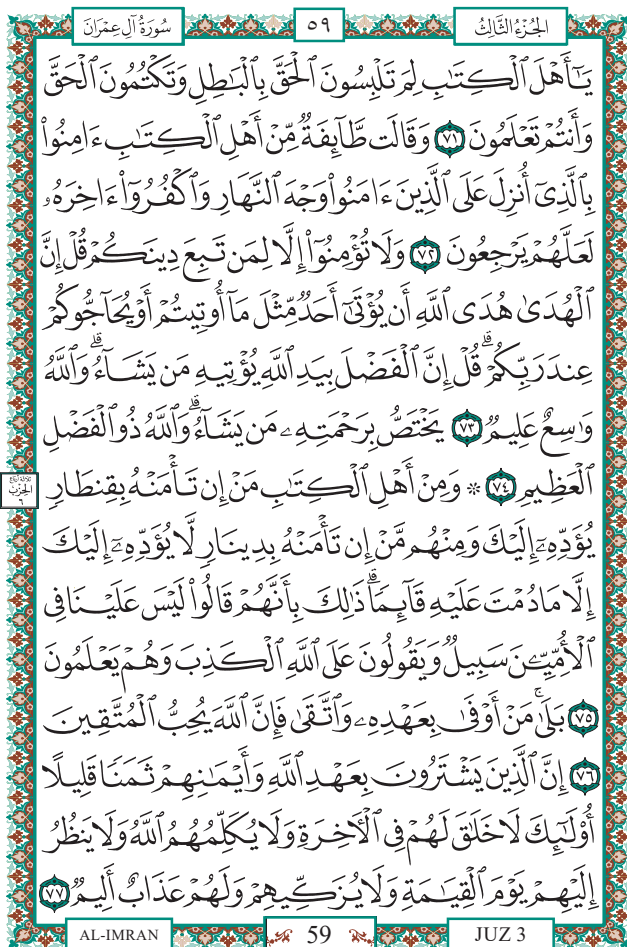 سُورَةُ آلِ عِمۡرَانَ
٥٩
الجُزْءُ الثَّالِثُ
يَـٰٓأَهۡلَ ٱلۡكِتَـٰبِ لِمَ تَلۡبِسُونَ ٱلۡحَقَّ بِٱلۡبَـٰطِلِ وَتَكۡتُمُونَ ٱلۡحَقَّ
وَأَنتُمۡ تَعۡلَمُونَ ٧١ وَقَالَت طَّآئِفَةٌ مِّنۡ أَهۡلِ ٱلۡكِتَـٰبِ ءَامِنُواْ
بِٱلَّذِىٓ أُنزِلَ عَلَى ٱلَّذِينَ ءَامَنُواْ وَجۡهَ ٱلنَّهَارِ وَٱكۡفُرُوٓاْ ءَاخِرَهُۥ
لَعَلَّهُمۡ يَرۡجِعُونَ ٧٢ وَلَا تُؤۡمِنُوٓاْ إِلَّا لِمَن تَبِعَ دِينَكُمۡ قُلۡ إِنَّ
ٱلۡهُدَىٰ هُدَى ٱللَّهِ أَن يُؤۡتَىٰٓ أَحَدٌ مِّثۡلَ مَآ أُوتِيتُمۡ أَوۡ يُحَآجُّوكُمۡ
عِندَ رَبِّكُمۡۗ قُلۡ إِنَّ ٱلۡفَضۡلَ بِيَدِ ٱللَّهِ يُؤۡتِيهِ مَن يَشَآءُۗ وَٱللَّهُ
وَٰسِعٌ عَلِيمٌ ٧٣ يَخۡتَصُّ بِرَحۡمَتِهِۦ مَن يَشَآءُۗ وَٱللَّهُ ذُو ٱلۡفَضۡلِ
ٱلۡعَظِيمِ ٧٤ ۞ وَمِنۡ أَهۡلِ ٱلۡكِتَـٰبِ مَنۡ إِن تَأۡمَنۡهُ بِقِنطَارٍ
يُؤَدِّهِۦٓ إِلَيۡكَ وَمِنۡهُم مَّنۡ إِن تَأۡمَنۡهُ بِدِينَارٍ لَّا يُؤَدِّهِۦٓ إِلَيۡكَ
إِلَّا مَا دُمۡتَ عَلَيۡهِ قَآئِمًاۗ ذَٰلِكَ بِأَنَّهُمۡ قَالُواْ لَيۡسَ عَلَيۡنَا فِى
ٱلۡأُمِّيِّـۧنَ سَبِيلٌ وَيَقُولُونَ عَلَى ٱللَّهِ ٱلۡكَذِبَ وَهُمۡ يَعۡلَمُونَ
٧٥ بَلَىٰۚ مَنۡ أَوۡفَىٰ بِعَهۡدِهِۦ وَٱتَّقَىٰ فَإِنَّ ٱللَّهَ يُحِبُّ ٱلۡمُتَّقِينَ
٧٦ إِنَّ ٱلَّذِينَ يَشۡتَرُونَ بِعَهۡدِ ٱللَّهِ وَأَيۡمَـٰنِهِمۡ ثَمَنًا قَلِيلًا
أُوْلَـٰٓئِكَ لَا خَلَـٰقَ لَهُمۡ فِى ٱلۡأٓخِرَةِ وَلَا يُكَلِّمُهُمُ ٱللَّهُ وَلَا يَنظُرُ
إِلَيۡهِمۡ يَوۡمَ ٱلۡقِيَـٰمَةِ وَلَا يُزَكِّيهِمۡ وَلَهُمۡ عَذَابٌ أَلِيمٌ ٧٧
ثلاثة أرباع
الحِزْبُ
٦
AL-IMRAN
59
JUZ 3